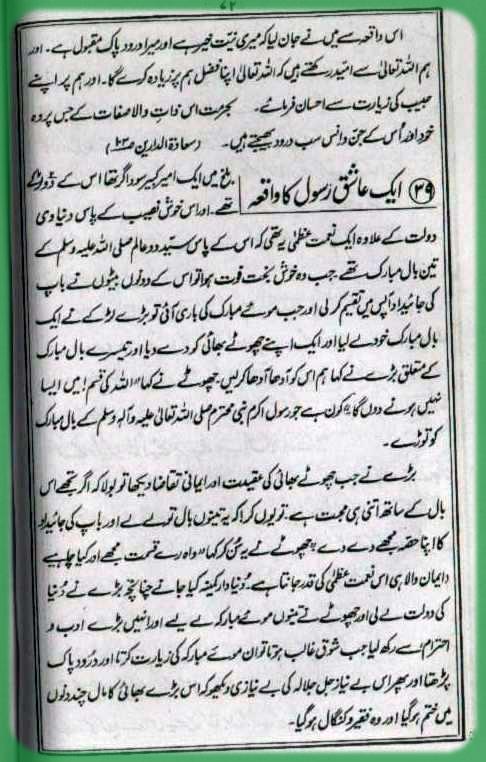 ۷۲
اس واقعہ سے میں نے جان لیا کہ میری نیت خیر ہے اور میرا درود پاک مقبول ہے۔ اور
ہم اللہ تعالیٰ سے امید رکھتے ہیں کہ اللہ تعالیٰ اپنا فضل ہم پر زیادہ کرے گا۔ اور ہم پر اپنے
حبیب کی زیارت سے احسان فرمائے۔ بحرمت اس ذات والا صفات کے جس پر وہ
خود اور اُس کے جن و انس سب درود بھیجتے ہیں۔ (سعادۃ الدارین ص۱۳۲)
۳۹ ایک عاشقِ رسول کا واقعہ بلخ میں ایک امیر کبیر سوداگر تھا اس کے دو لڑکے
تھے۔ اور اس خوش نصیب کے پاس دنیاوی
دولت کے علاوہ ایک نعمت عظمیٰ یہ تھی کہ اس کے پاس سیّد دو عالم صلی اللہ علیہ وسلم کے
تین بال مبارک تھے۔ جب وہ خوش بخت فوت ہوا تو اس کے دونوں بیٹوں نے باپ
کی جائیداد آپس میں تقسیم کر لی اور جب موئے مبارک کی باری آئی تو بڑے لڑکے نے ایک
بال مبارک خود لے لیا اور ایک اپنے چھوٹے بھائی کو دے دیا اور تیسرے بال مبارک
کے متعلق بڑے نے کہا ہم اس کو آدھا آدھا کر لیں۔ چھوٹے نے کہا "اللہ کی قسم! میں ایسا
نہیں ہونے دوں گا۔ کون ہے جو رسول اکرم نبی محترم صلی اللہ تعالیٰ علیہ و آلہٖ وسلم کے بال مبارک
کو توڑے۔
بڑے نے جب چھوٹے بھائی کی عقیدت اور ایمانی تقاضا دیکھا تو بولا کہ اگر تجھے اس
بال کے ساتھ اتنی ہی محبت ہے۔ تو یوں کر! کہ یہ تینوں بال تو لے لے اور باپ کی جائیداد
کا اپنا حصّہ مجھے دے دے" چھوٹے نے یہ سُن کر کہا "واہ رے قسمت مجھے اور کیا چاہیے
(ایمان والا ہی اس نعمت عظمیٰ کی قدر جانتا ہے۔ دُنیا دار کمینہ کیا جانے) چنانچہ بڑے نے دُنیا
کی دولت لے لی اور چھوٹے نے تینوں موئے مبارک لے لیے اور انہیں بڑے ادب و
احترام سے رکھ لیا جب شوق غالب ہوتا تو ان موئے مبارک کی زیارت کرتا اور درُود پاک
پڑھتا اور پھر اس بے نیاز جل جلالہ کی بے نیازی دیکھو کہ اس بڑے بھائی کا مال چند دنوں
میں ختم ہو گیا اور وہ فقیر و کنگال ہو گیا۔